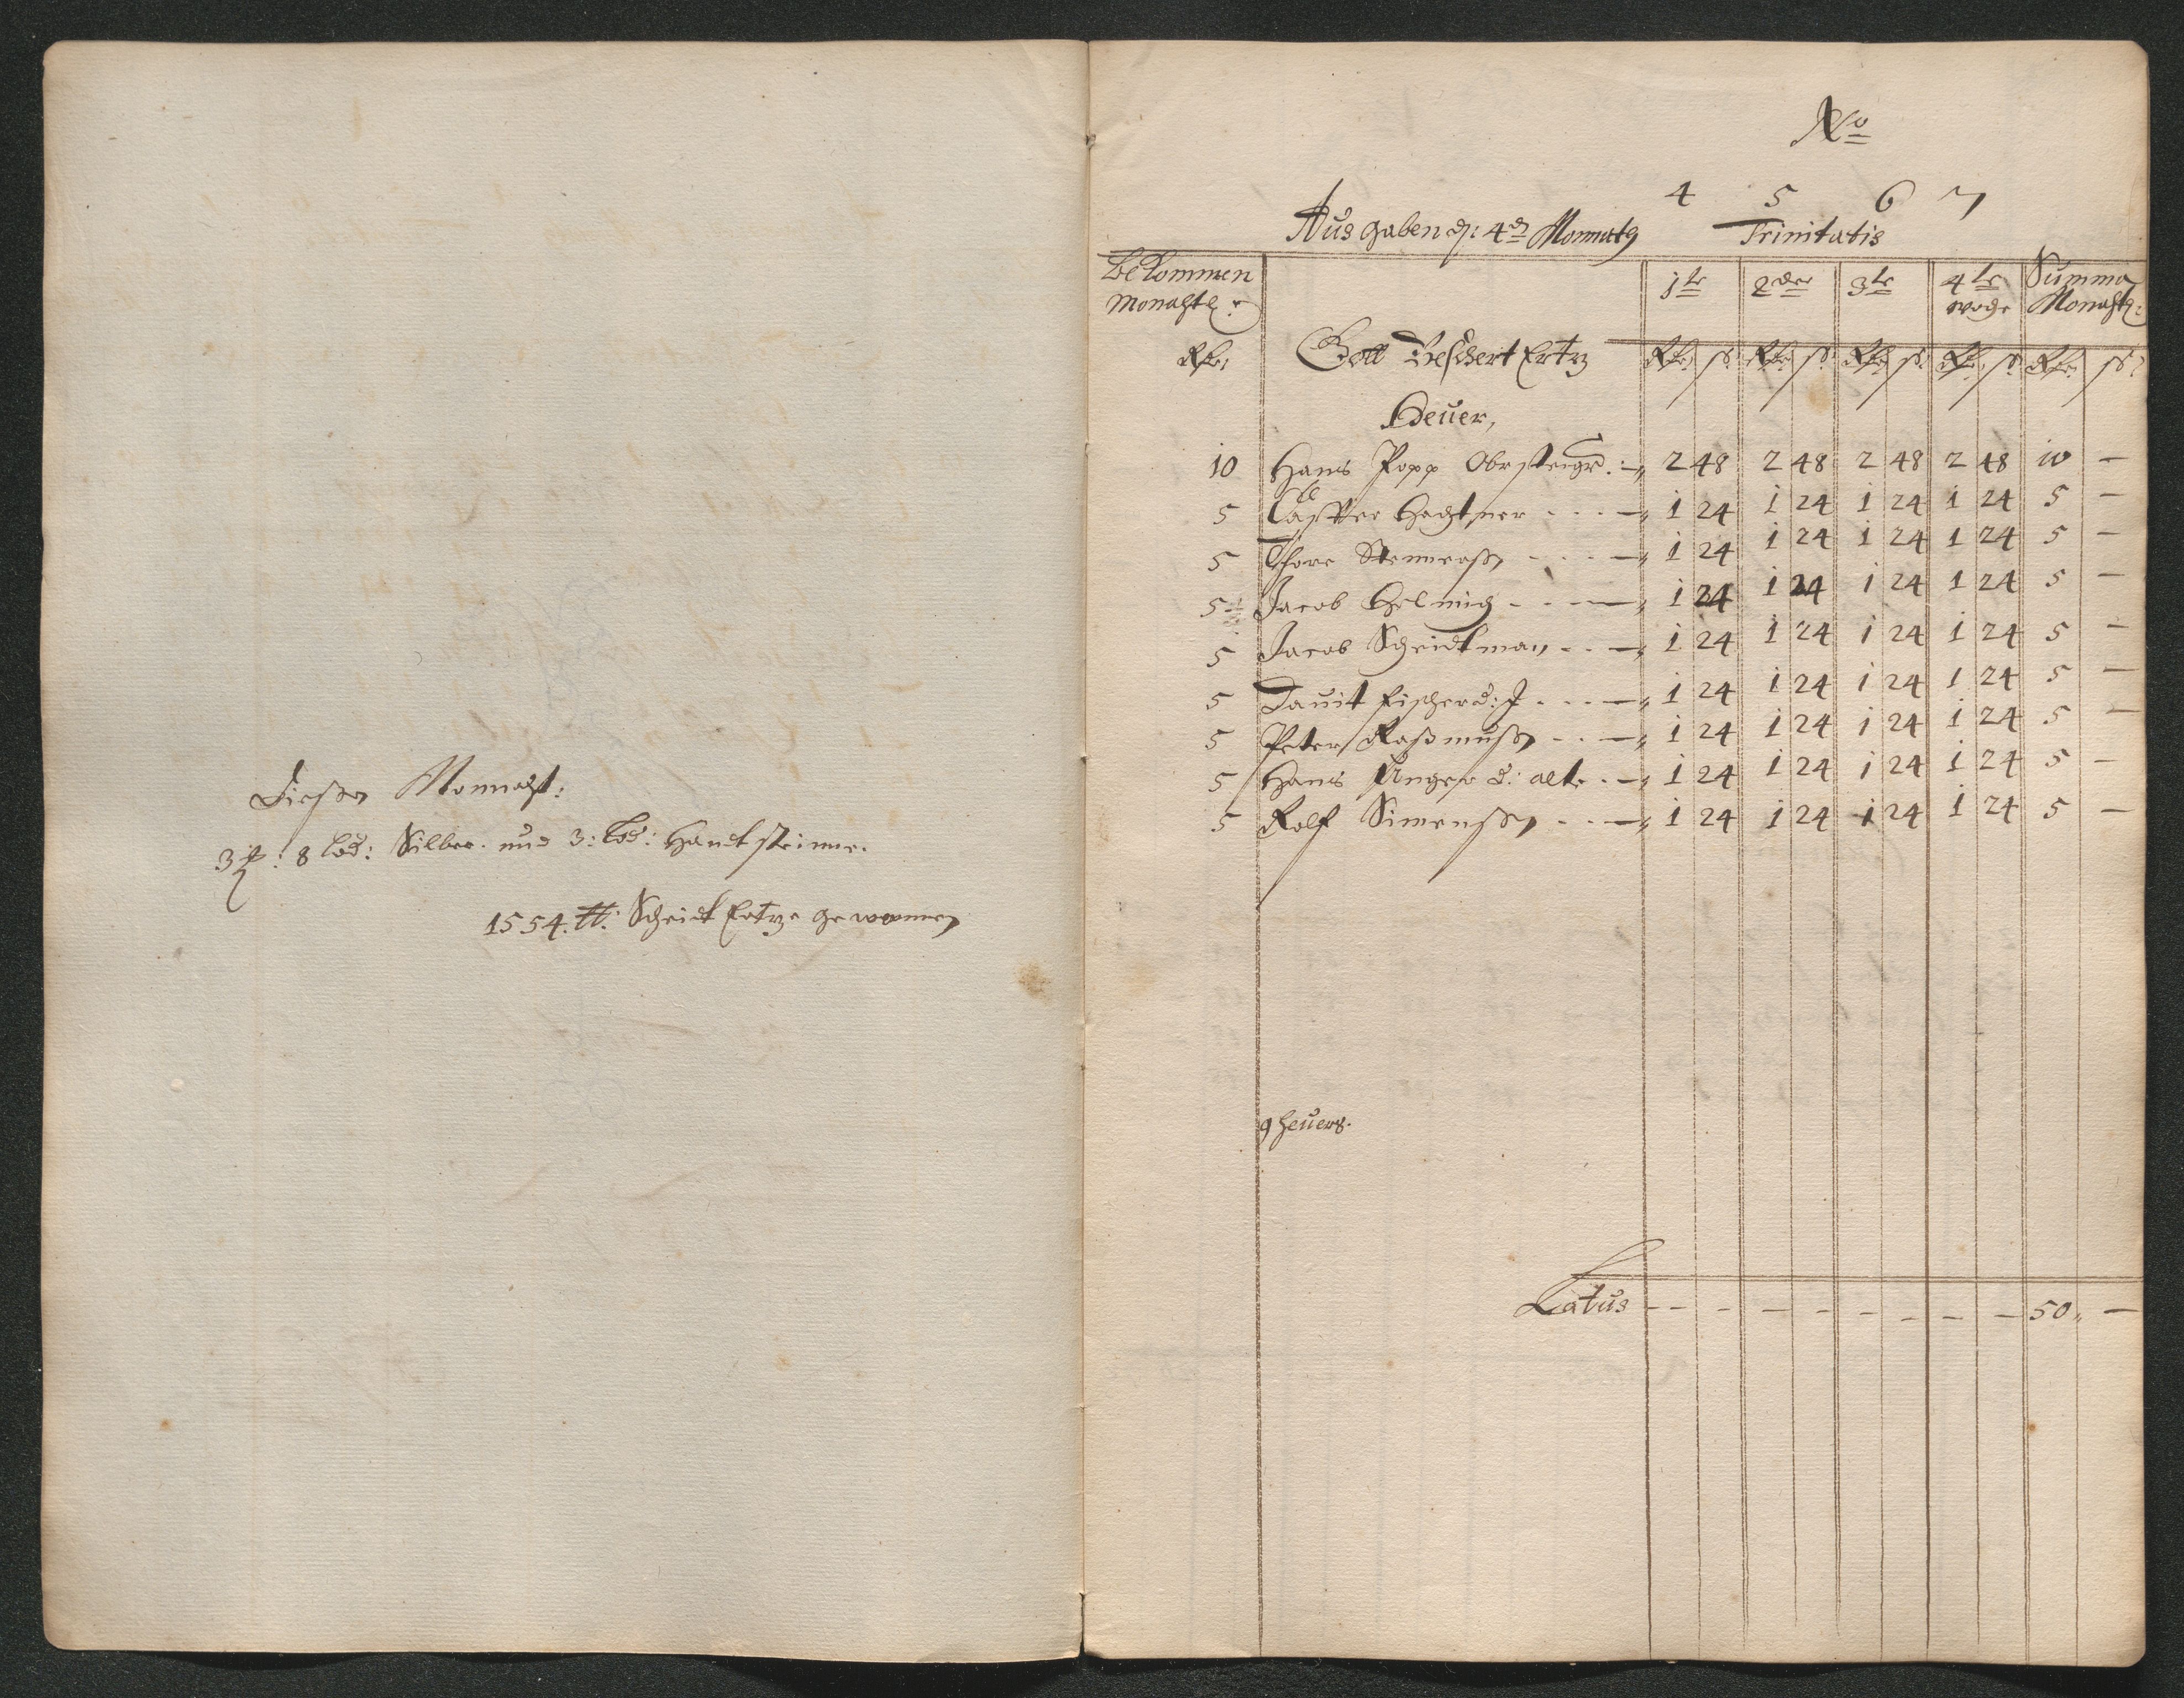 Dießen Monnaht:
3 ℔: 8 Lod: Silber. und 3: Lod: Handtsteinne.
1554. tt: Scheidt Ertze gewonnen
No
4 5 6 7
Ausgaben d: 4ten Monnats Trinitatis
Bekommen 1te 2der 3te 4te Summa
Monahtl: woche Monahtl:
Rdr: Gott Beschert Ertz Rdr: ß: Rdr: ß: Rdr: ß: Rdr: ß: Rdr: ß:
Heuer,
10 Hans Popp Obersteiger. 2 48 2 48 2 48 2 48 10 –
5 Casper Hachtner - - - 1 24 1 24 1 24 1 24 5 –
5 Thore - - - 1 24 1 24 1 24 1 24 5 –
5 Jacob Helmich - - - 1 24 1 24 1 24 1 24 5 –
5 Jacob Scheidtman - - - 1 24 1 24 1 24 1 24 5 –
5 Dauit Fischer d: J - - - 1 24 1 24 1 24 1 24 5 –
5 Peter Raßmußen - - - 1 24 1 24 1 24 1 24 5 –
5 Hans Unger d: alte - - 1 24 1 24 1 24 1 24 5 –
5 Rolf Simenßen - - - 1 24 1 24 1 24 1 24 5 –
9 heuers.
Latus - - - - - - - - 50 „ –